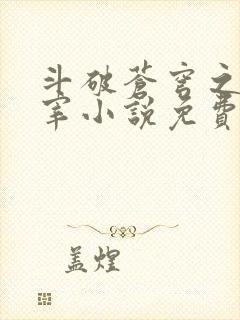 斗破蒼穹之
宰小說免費
盖煌